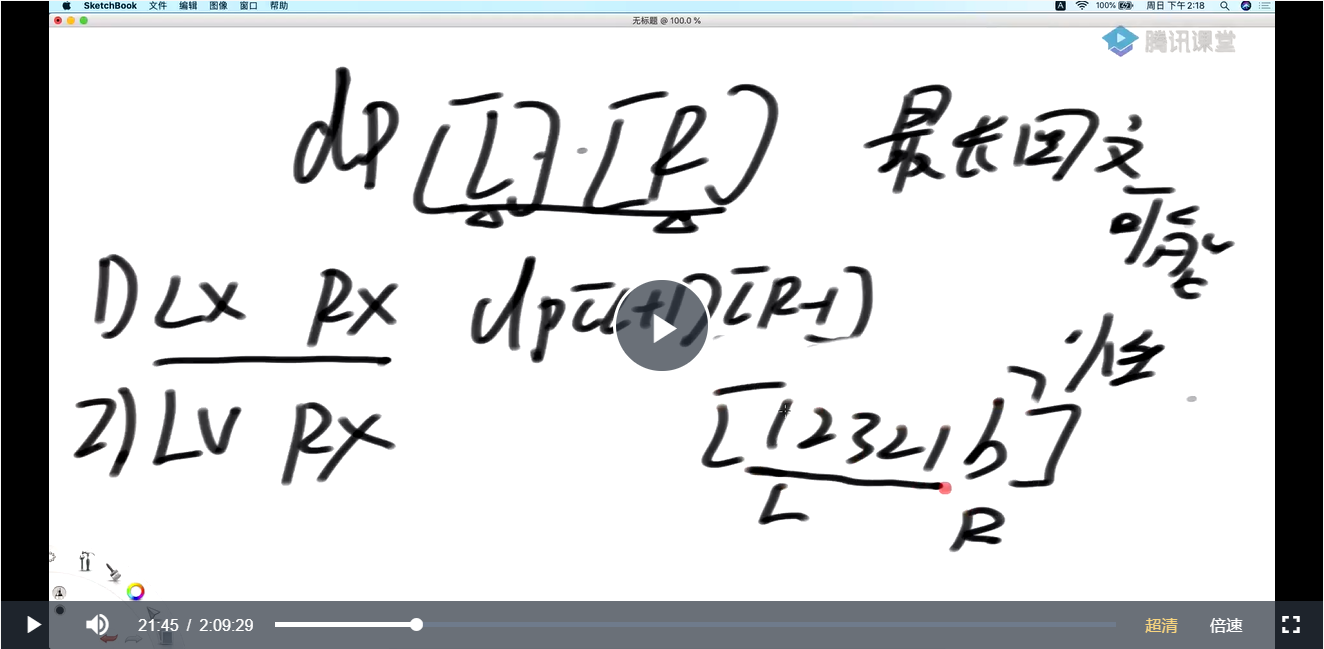 SketchBook 文件 编辑 图像 窗口 帮助 100% 周日 下午2:18
无标题 @ 100.0 %
腾讯课堂
dp[L]·[R] 最长回文
可能
1) LX RX dp[L+1][R-1]
性
2) L√ RX [12321b]
L R
21:45 / 2:09:29 超清 倍速